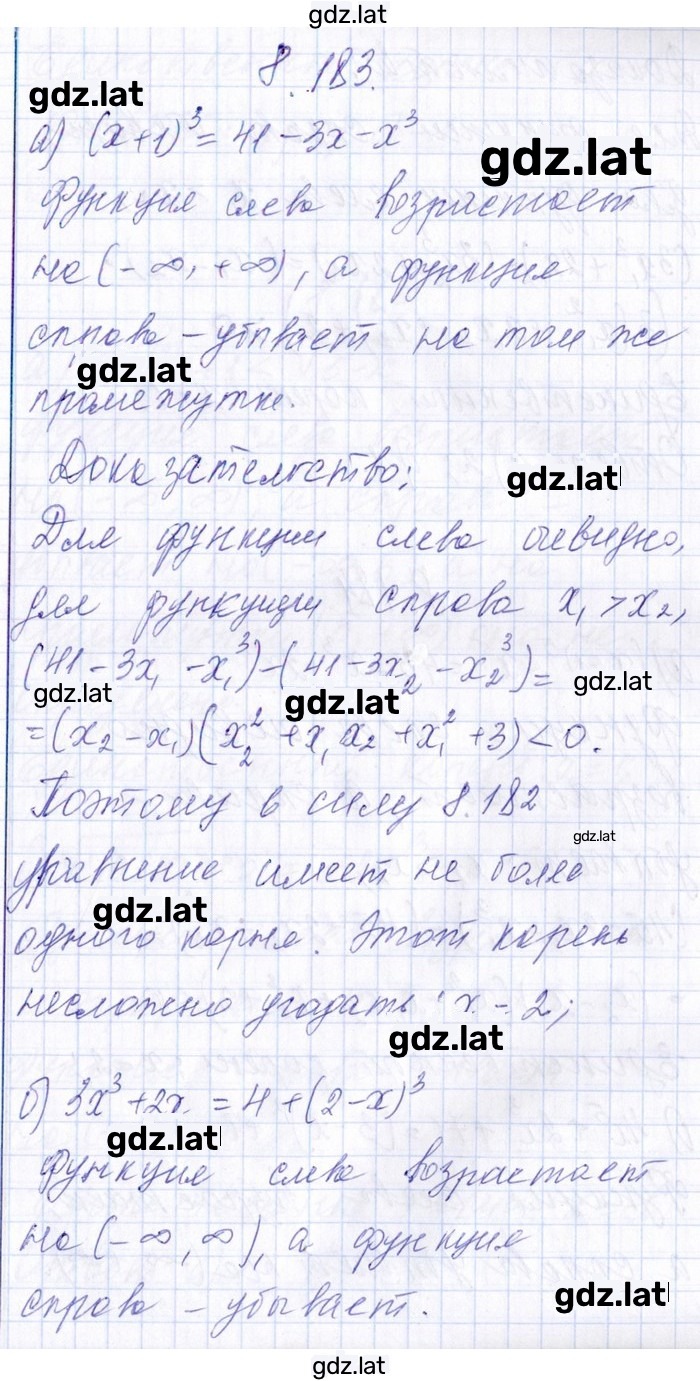 gdz.lat
8.183.
gdz.lat
а) (x+1)³ = 41 - 3x - x³
gdz.lat
Функция слева возрастает
на (-∞, +∞), а функция
справа - убывает на том же
gdz.lat
промежутке.
Доказательство:
gdz.lat
Для функции слева очевидно,
для функции справа x₁ > x₂,
(41 - 3x₁ - x₁³) - (41 - 3x₂ - x₂³) =
gdz.lat gdz.lat gdz.lat
= (x₂ - x₁)(x₂² + x₁x₂ + x₁² + 3) < 0.
Поэтому в силу 8.182
gdz.lat
уравнение имеет не более
gdz.lat
одного корня. Этот корень
несложно угадать: x = 2;
gdz.lat
б) 3x³ + 2x = 4 + (2 - x)³
gdz.lat
Функция слева возрастает
на (-∞, ∞), а функция
справа - убывает.
gdz.lat
gdz.lat